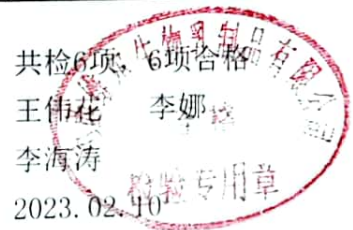 共检6项，6项合格
王伟花 李娜
李海涛
2023.02.10
生物乳制品有限公司
检验专用章